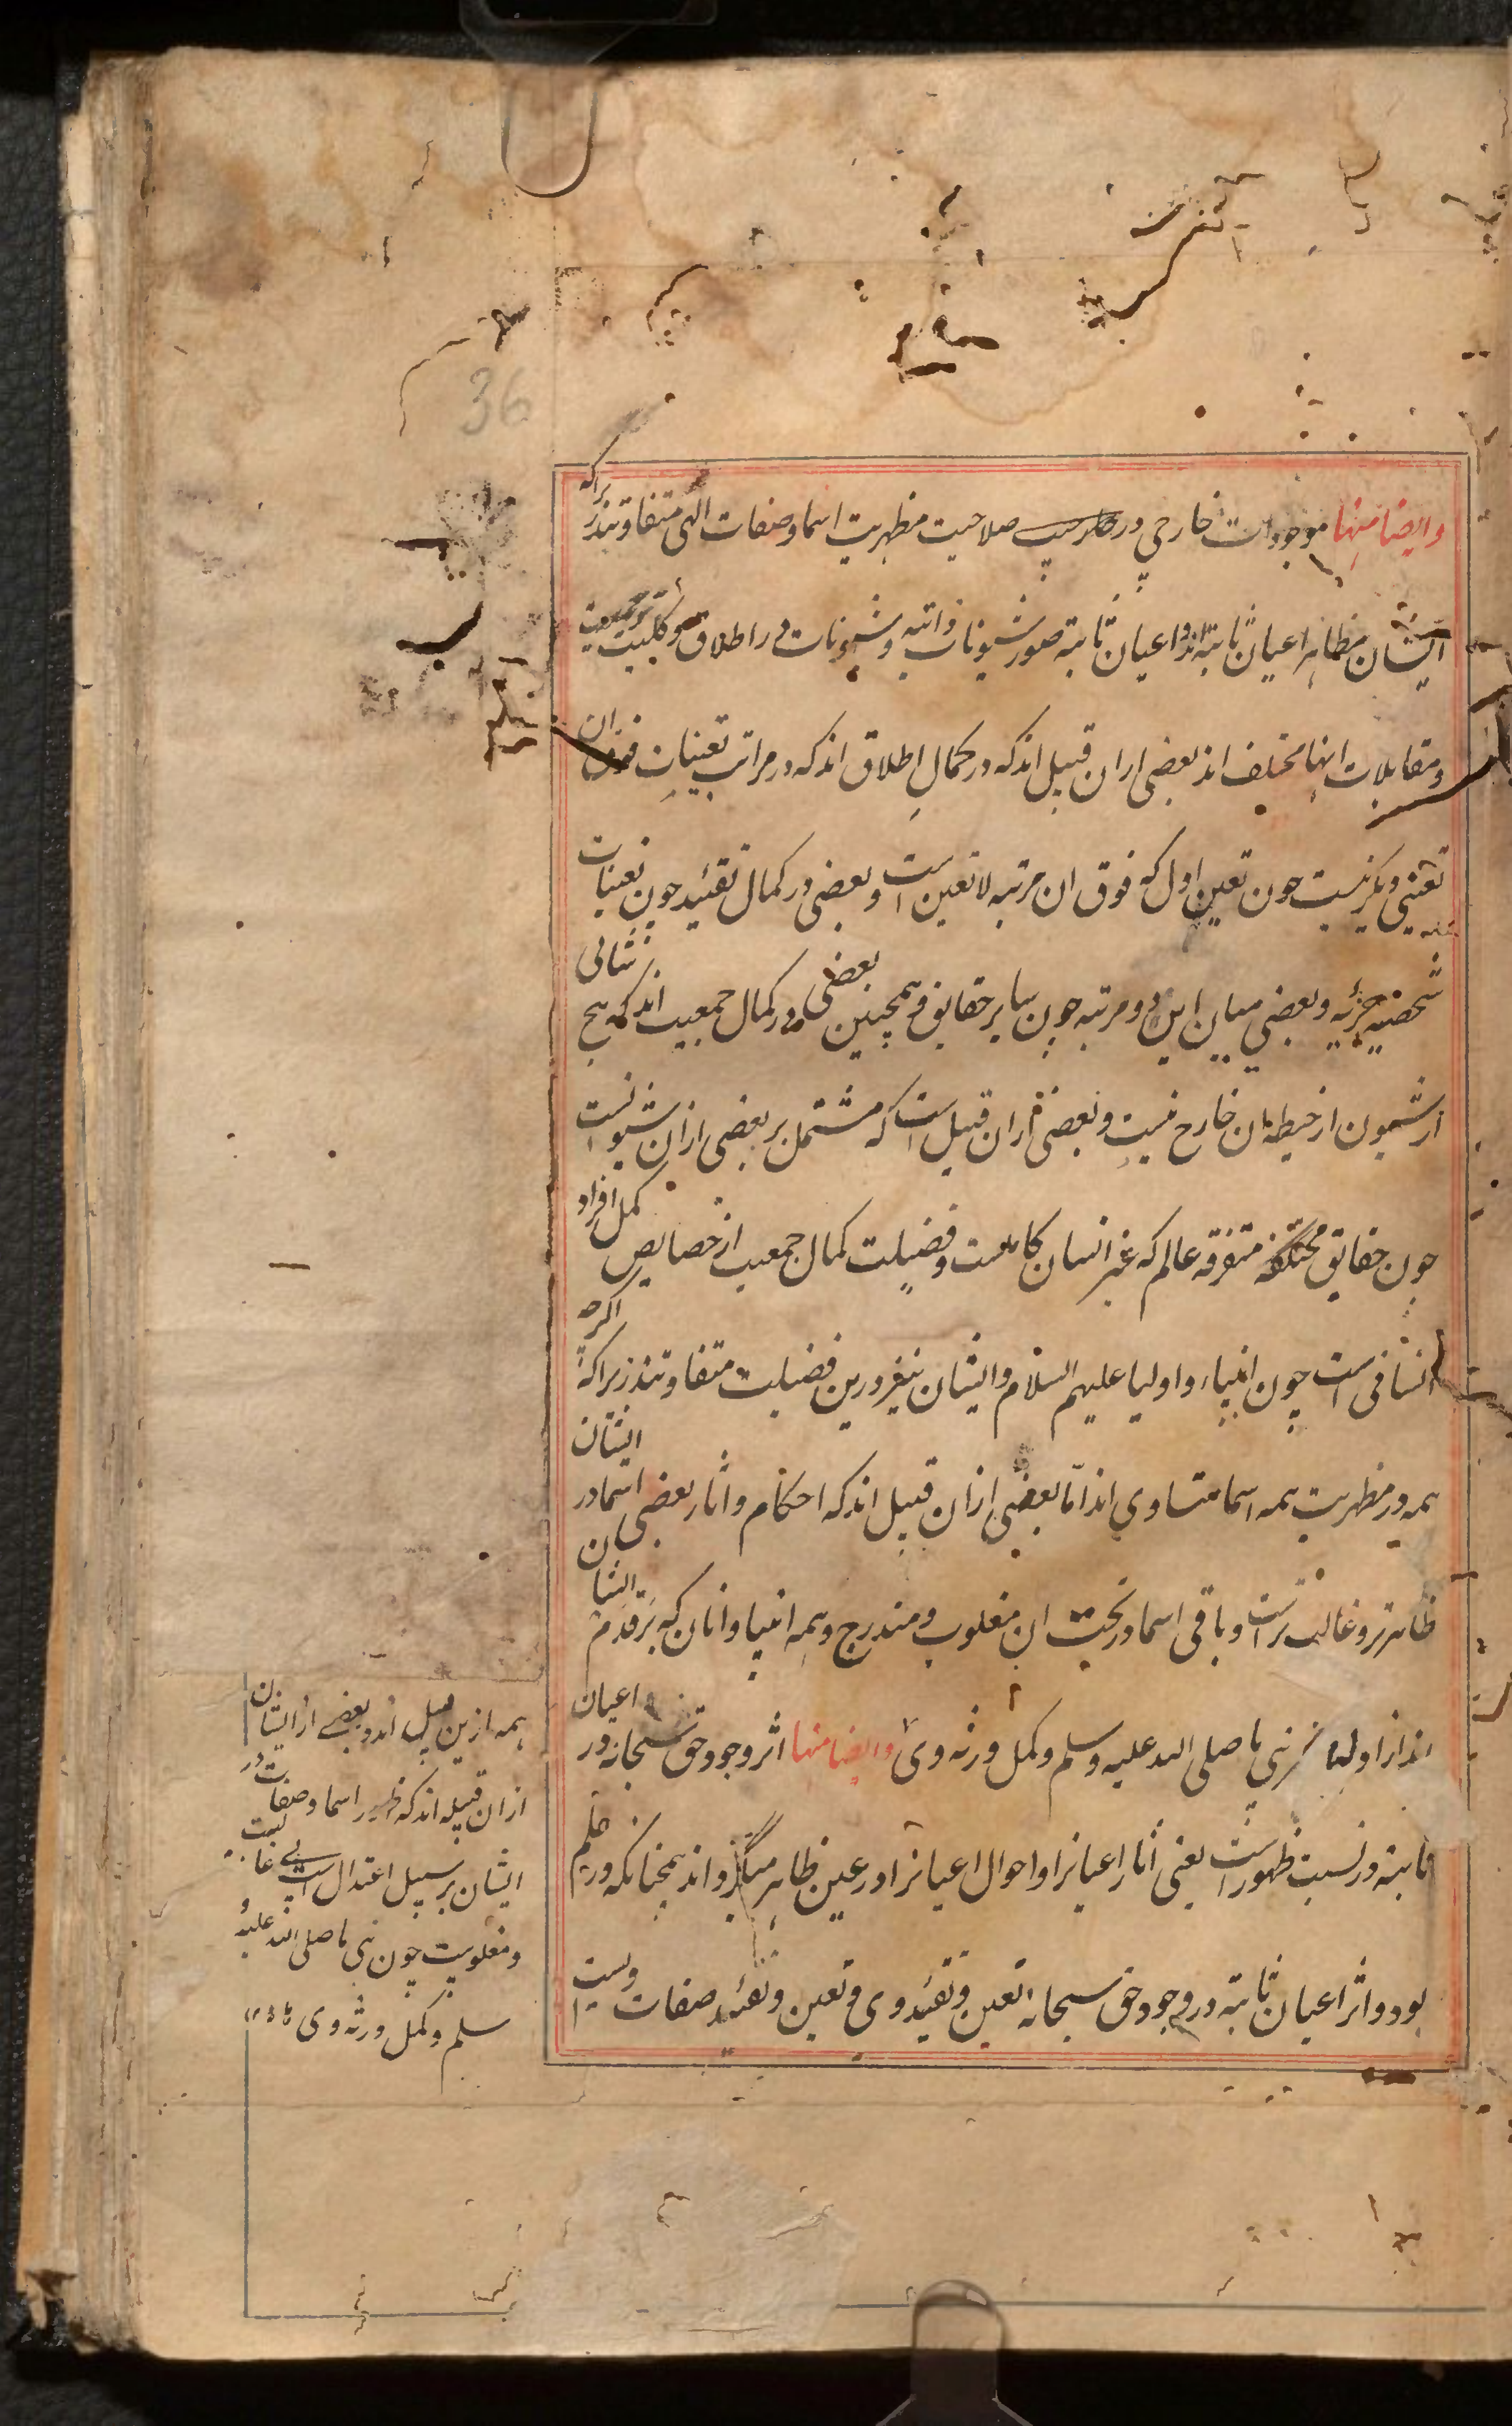 36
وایضا منها موجودات خارجی در صلاحیت مظهریت اسما و صفات الهی متفاوتند زیراکه
ایشان مظاهر اعیان ثابته اند و اعیان ثابته صور شیونات ذاتیه و شیونات در اطلاق و کلیت و جمعیت
و مقابلات اینها مختلف اند بعضی ازان قبیل اند که در کمال اطلاق اند که در مراتب تعینات فوق ان
تعینی دیگر نیست چون تعین اول که فوق ان مرتبه لا تعین است و بعضی در کمال تقئید چون تعینات
شخصیه جزئیه و بعضی میان این دو مرتبه چون سایر حقایق و همچنین بعضی در کمال جمعیت اند که هیچ شانی
از شیون از حیطه ان خارج نیست و بعضی ازان قبیل است که مشتمل بر بعضی ازان شیونست
چون حقایق متفرقه عالم که غیر انسان کاملست و فضیلت کمال جمعیت از خصایص کمل افراد
انسانی است چون انبیاء و اولیا علیهم السلام و ایشان نیز درین فضیلت متفاوتند زیراکه اکرچه
همه در مظهریت همه اسما متساوی اند اما بعضی ازان قبیل اند که احکام و اثار بعضی اسما در ایشان
ظاهرتر و غالب ترست و باقی اسما در تحت ان مغلوب و مندرج و همه انبیا و انان که بر قدم ایشان
اند از اولیا نبی ما صلی الله علیه وسلم و کمل ورثه وی وایضا منها اثر وجود حق سبحانه در اعیان
ثابته در نسبت ظهور است یعنی اثار اعیانرا و احوال اعیانرا در عین ظاهر میگرداند همچنانکه در علم
بود و اثر اعیان ثابته در وجود حق سبحانه تعین و تقئید وی و تعین و تقئید صفات ویست
همه ازین قبیل اند و بعضی از ایشان
ازان قبیله اند که ظهور اسما و صفات در
ایشان بر سبیل اعتدال است بی غالبیت
و مغلوبیت چون نبی ما صلی الله علیه و
سلم و کمل ورثه وی